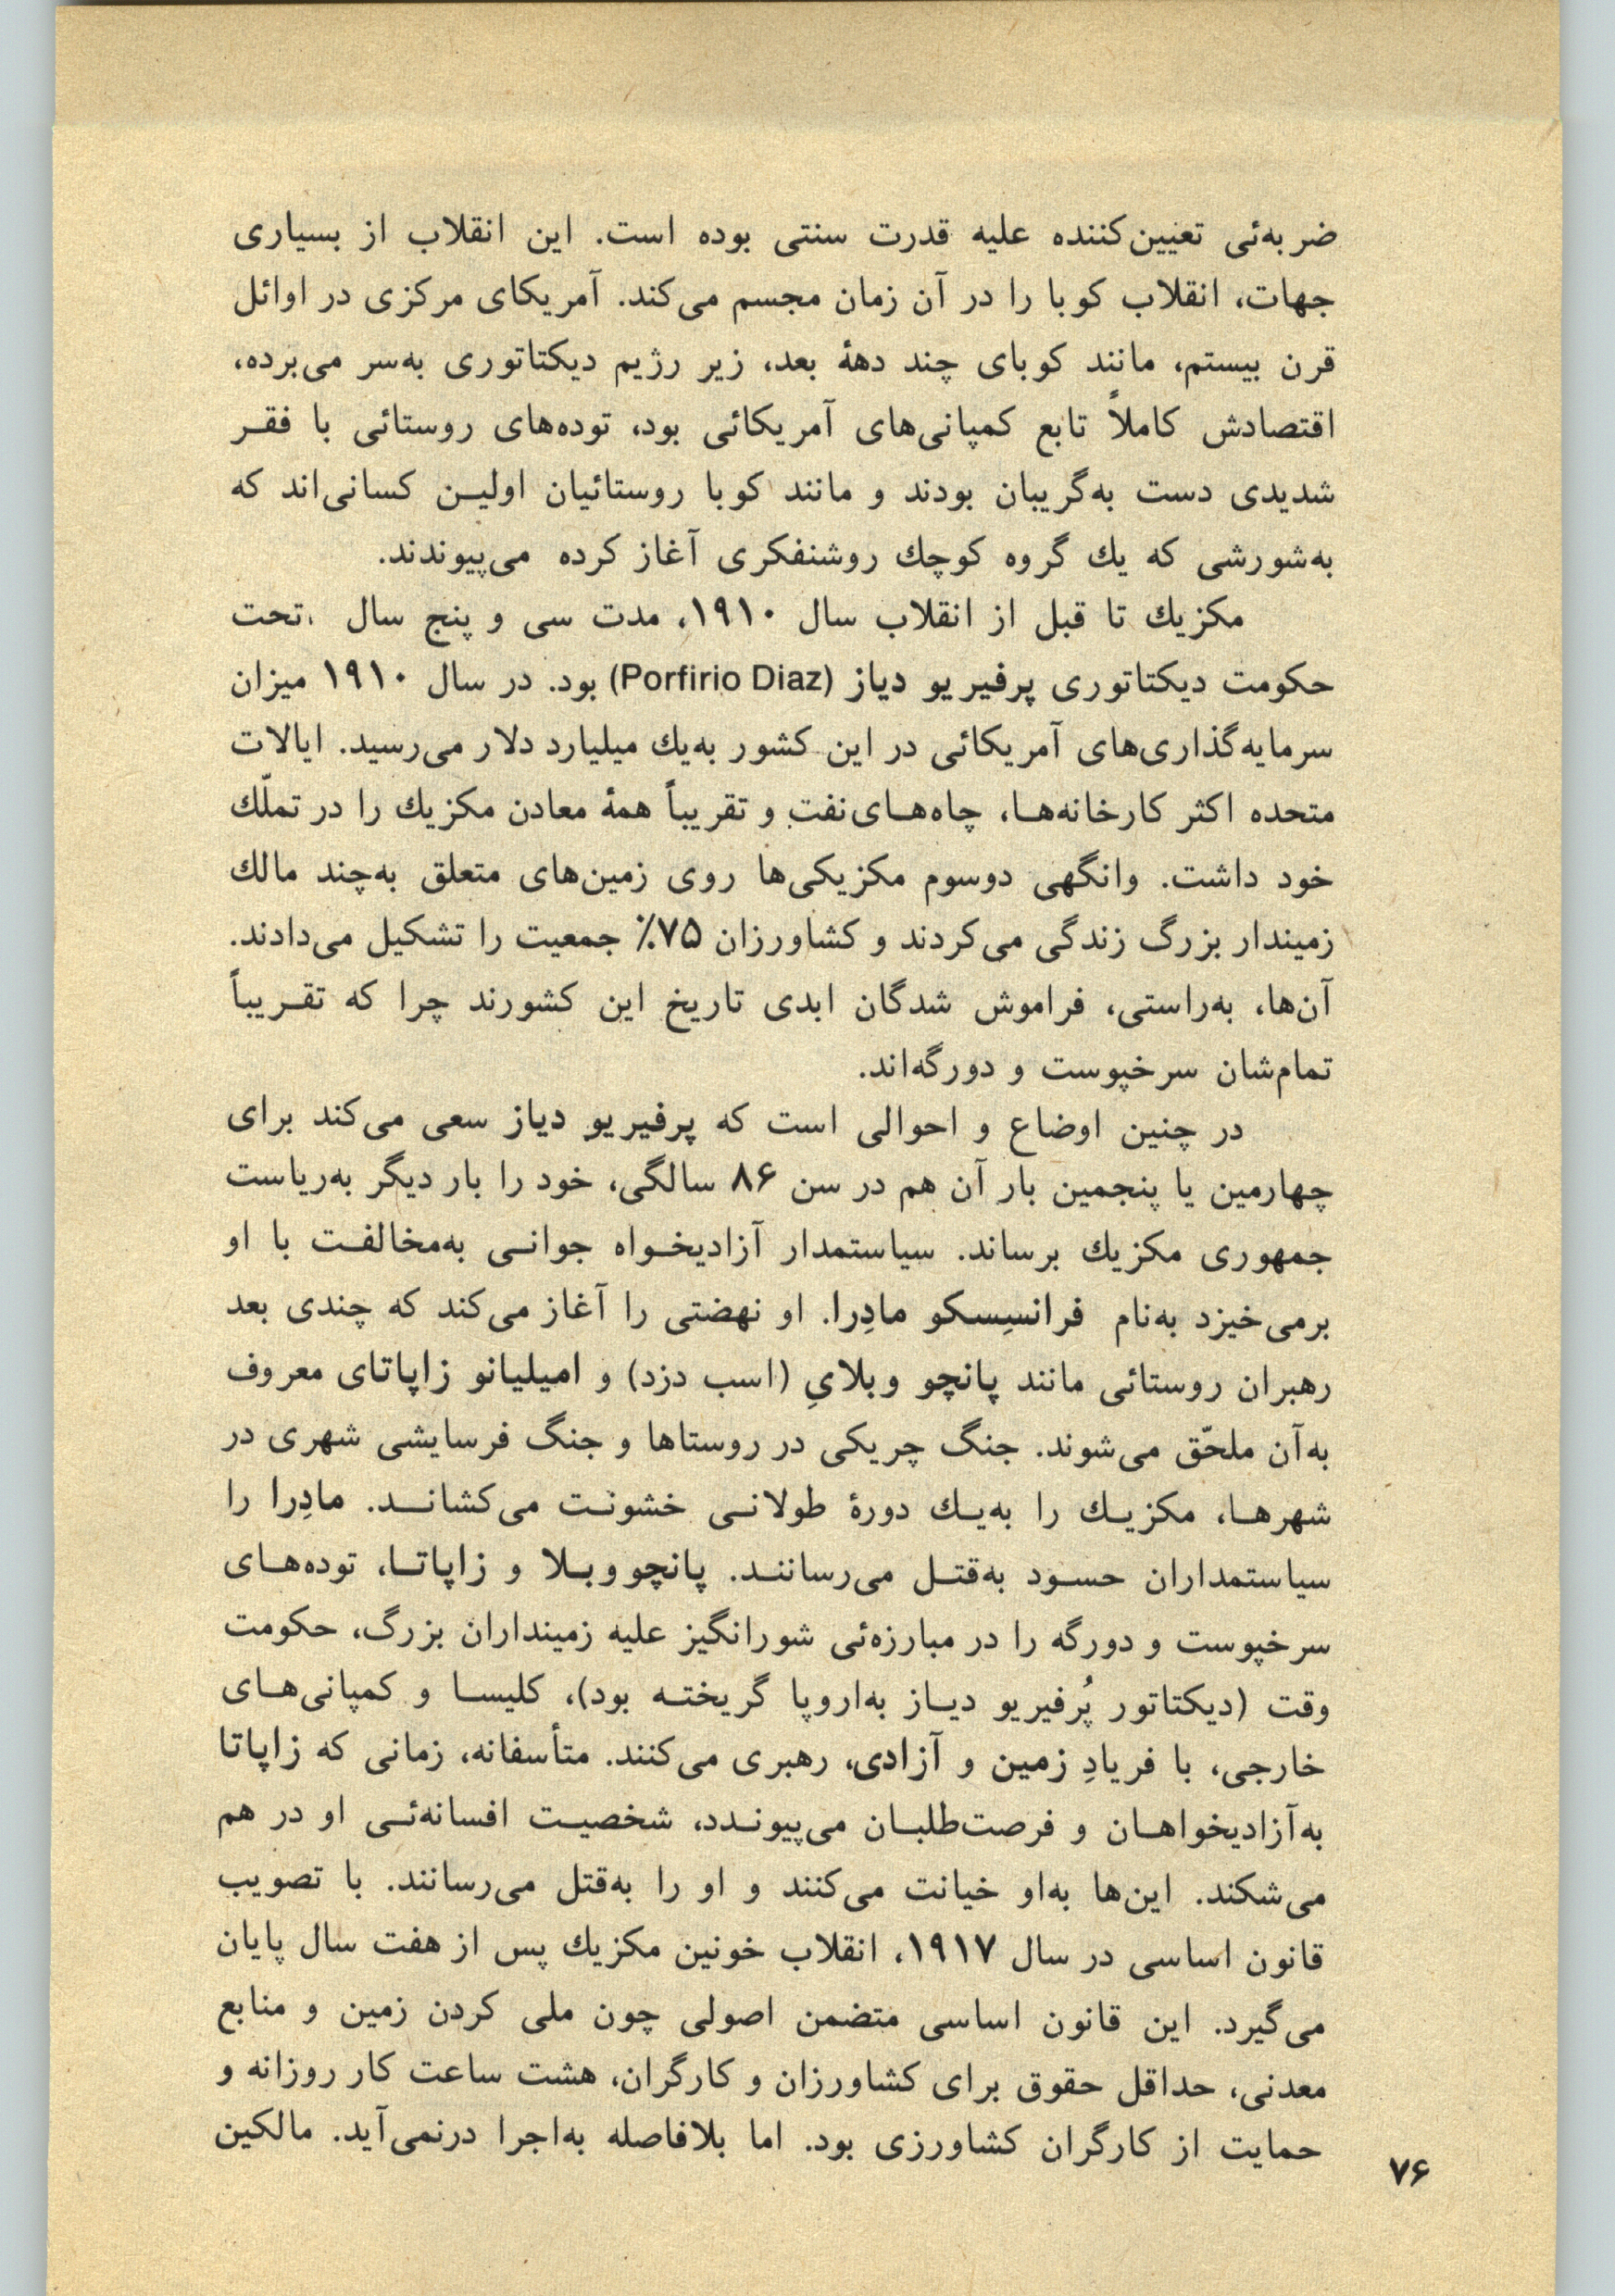 ضربه‌ئی تعیین‌کننده علیه قدرت سنتی بوده است. این انقلاب از بسیاری
جهات، انقلاب کوبا را در آن زمان مجسم می‌کند. آمریکای مرکزی در اوائل
قرن بیستم، مانند کوبای چند دههٔ بعد، زیر رژیم دیکتاتوری به‌سر می‌برده،
اقتصادش کاملاً تابع کمپانی‌های آمریکائی بود، توده‌های روستائی با فقـر
شدیدی دست به‌گریبان بودند و مانند کوبا روستائیان اولیـن کسانی‌اند که
به‌شورشی که یك گروه کوچك روشنفکری آغاز کرده می‌پیوندند.
مکزیك تا قبل از انقلاب سال ۱۹۱۰، مدت سی و پنج سال تحت
حکومت دیکتاتوری پرفیریو دیاز (Porfirio Diaz) بود. در سال ۱۹۱۰ میزان
سرمایه‌گذاری‌های آمریکائی در این کشور به‌یك میلیارد دلار می‌رسید. ایالات
متحده اکثر کارخانه‌هـا، چاه‌هـای‌نفت و تقریباً همهٔ معادن مکزیك را در تملّك
خود داشت. وانگهی دوسوم مکزیکی‌ها روی زمین‌های متعلق به‌چند مالك
زمیندار بزرگ زندگی می‌کردند و کشاورزان ۷۵٪ جمعیت را تشکیل می‌دادند.
آن‌ها، به‌راستی، فراموش شدگان ابدی تاریخ این کشورند چرا که تقـریباً
تمام‌شان سرخپوست و دورگه‌اند.
در چنین اوضاع و احوالی است که پرفیریو دیاز سعی می‌کند برای
چهارمین یا پنجمین بار آن هم در سن ۸۶ سالگی، خود را بار دیگر به‌ریاست
جمهوری مکزیك برساند. سیاستمدار آزادیخـواه جوانـی به‌مخالفـت با او
برمی‌خیزد به‌نام فرانسِسکو مادِرا. او نهضتی را آغاز می‌کند که چندی بعد
رهبران روستائی مانند پانچو ویلایِ (اسب دزد) و امیلیانو زاپاتای معروف
به‌آن ملحّق می‌شوند. جنگ چریکی در روستاها و جنگ فرسایشی شهری در
شهرهـا، مکزیـك را به‌یـك دورهٔ طولانـی خشونـت می‌کشانـد. مادِرا را
سیاستمداران حسـود به‌قتـل می‌رساننـد. پانچوویـلا و زاپاتـا، توده‌هـای
سرخپوست و دورگه را در مبارزه‌ئی شورانگیز علیه زمینداران بزرگ، حکومت
وقت (دیکتاتور پُرفیریو دیـاز به‌اروپا گریختـه بود)، کلیسـا و کمپانی‌هـای
خارجی، با فریادِ زمین و آزادی، رهبری می‌کنند. متأسفانه، زمانی که زاپاتا
به‌آزادیخواهـان و فرصت‌طلبـان می‌پیونـدد، شخصیـت افسانه‌ئـی او در هم
می‌شکند. این‌ها به‌او خیانت می‌کنند و او را به‌قتل می‌رسانند. با تصویب
قانون اساسی در سال ۱۹۱۷، انقلاب خونین مکزیك پس از هفت سال پایان
می‌گیرد. این قانون اساسی متضمن اصولی چون ملی کردن زمین و منابع
معدنی، حداقل حقوق برای کشاورزان و کارگران، هشت ساعت کار روزانه و
حمایت از کارگران کشاورزی بود. اما بلافاصله به‌اجرا درنمی‌آید. مالکین
۷۶